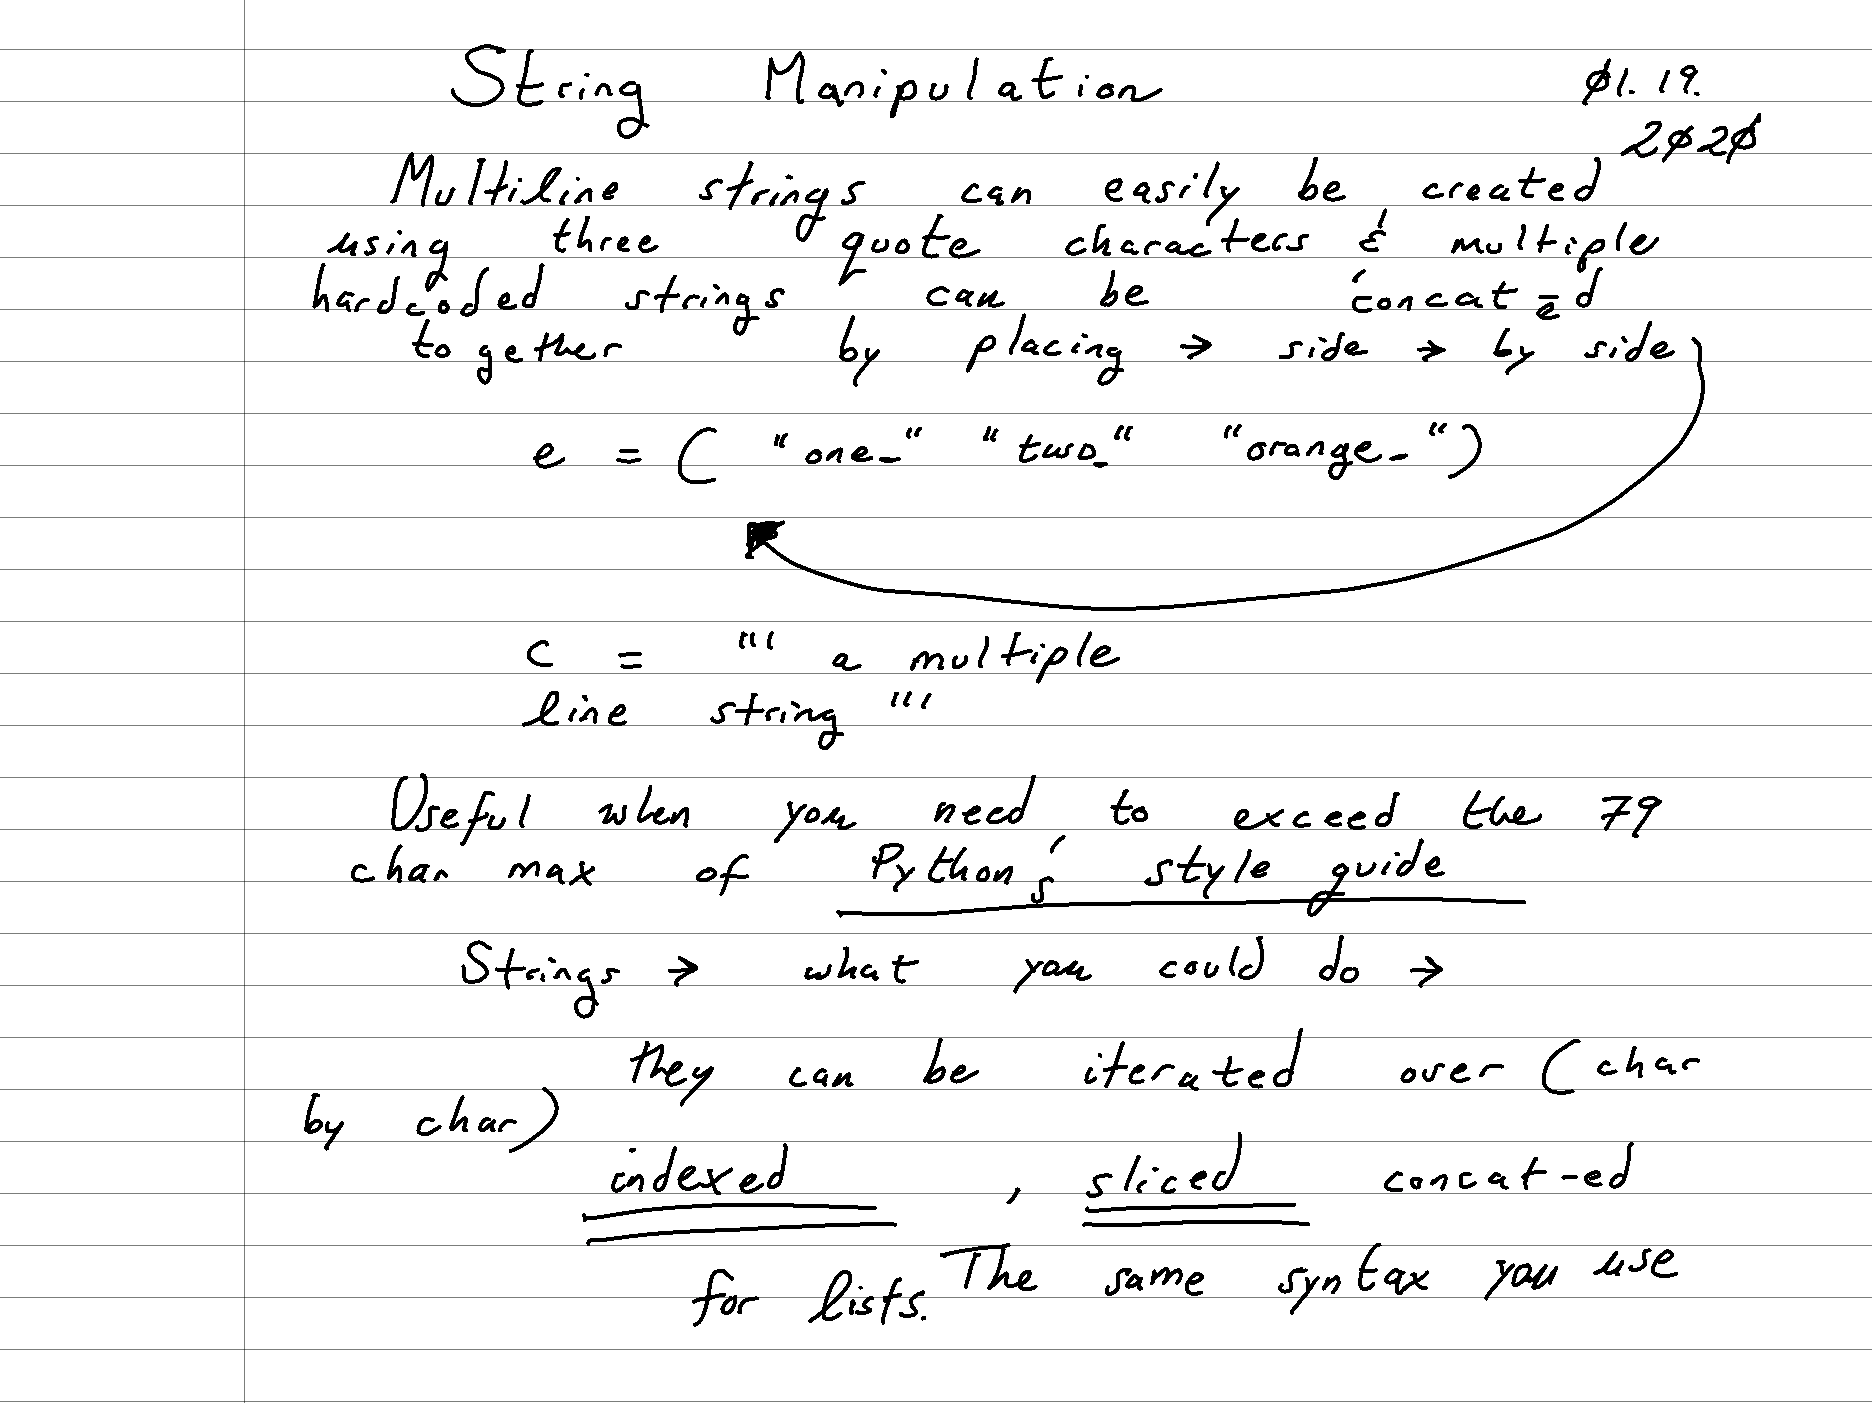 String Manipulation 01.19.
2020
Multiline strings can easily be created
using three quote characters & multiple
hardcoded strings can be concat-ed
together by placing → side → by side
e = ( "one_" "two_" "orange_")
c = ''' a multiple
line string '''
Useful when you need to exceed the 79
char max of Python's style guide
Strings → what you could do →
they can be iterated over (char
by char)
indexed , sliced concat-ed
for lists. The same syntax you use